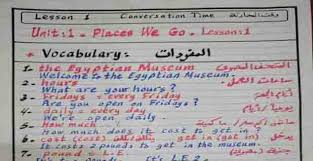 Lesson 1 Conversation Time وقت المحادثة
Unit:1 - Places We Go. Lesson:1
* Vocabulary: المفردات
1- the Egyptian Museum المتحف المصرى
Welcome to the Egyptian Museum.
2- hours ساعات العمل
What are your hours?
3- Fridays = every Friday
Are you open on Fridays?
4- daily = every day
We're open daily
5- How much
How much does it cost to get in?
6- cost (cost) get in (got in)
It costs 2 pounds to get in the museum.
7- pound = L.E.
It's 2 pounds. It's L.E. 2